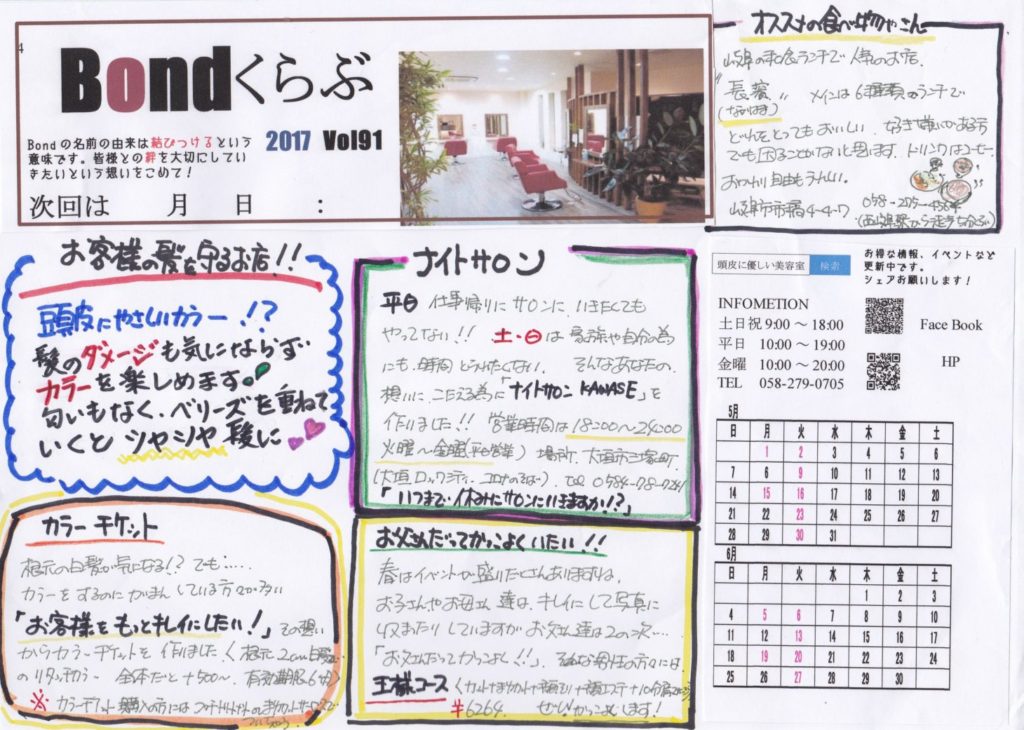 Bondくらぶ
Bondの名前の由来は結びつけるという
意味です。皆様との絆を大切にしてい
きたいという想いをこめて!
2017 Vol91
次回は 月 日 :
オススメの食べ物やさん
山県の和食ランチで人気のお店.
メインは6種類のランチで
とれもとってもおいしい. 好き嫌いがある方
でも困ることがないと思います. ドリンクはコーヒー.
おかわり自由もうれしい。
お客様の髪を守るお店!!
頭皮にやさしいカラー!?
髪のダメージも気にならず
カラーを楽しめます。
匂いもなく、ベリーズを重ねて
いくとツヤツヤ髪に
ナイトサロン
平日 仕事帰りにサロンに いきたくても
やってない!! 土・日は家族や自分の為
にも時間とられたくない. そんなあなたの.
想いに.こたえる為に「ナイトサロン KAWASE」を
作りました!! 営業時間は18:00〜24:00
火曜〜金曜(平日営業) 場所. 大垣市三塚町
(大垣ロックシティ. コロナのそば) tel 0584-78-7241
「いつまで休みにサロンにいきますか!?」
カラーチケット
根元の白髪が気になる!? でも.....
カラーをするのにがまんしている方々が多い
「お客様をもっとキレイにしたい!」その想い
からカラーチケットを作りました.
お父さんだってかっこよくいたい!!
春はイベントが盛りだくさんありますよね.
お子さんやお母さん達は、キレイにして写真に
収またりしていますが お父さん達は2の次....
「お父さんだってかっこよく!!」. そんな男性の方々には.
王様コース
¥6264. ぜひかっこよします!
頭皮に優しい美容室 検索
お得な情報、イベントなど
更新中です。
シェアお願いします!
INFOMETION
土日祝 9:00 〜 18:00
平日 10:00 〜 19:00
金曜 10:00 〜 20:00
TEL 058-279-0705
Face Book
HP
5月
日 月 火 水 木 金 土
1 2 3 4 5 6
7 8 9 10 11 12 13
14 15 16 17 18 19 20
21 22 23 24 25 26 27
28 29 30 31
6月
日 月 火 水 木 金 土
1 2 3
4 5 6 7 8 9 10
11 12 13 14 15 16 17
18 19 20 21 22 23 24
25 26 27 28 29 30